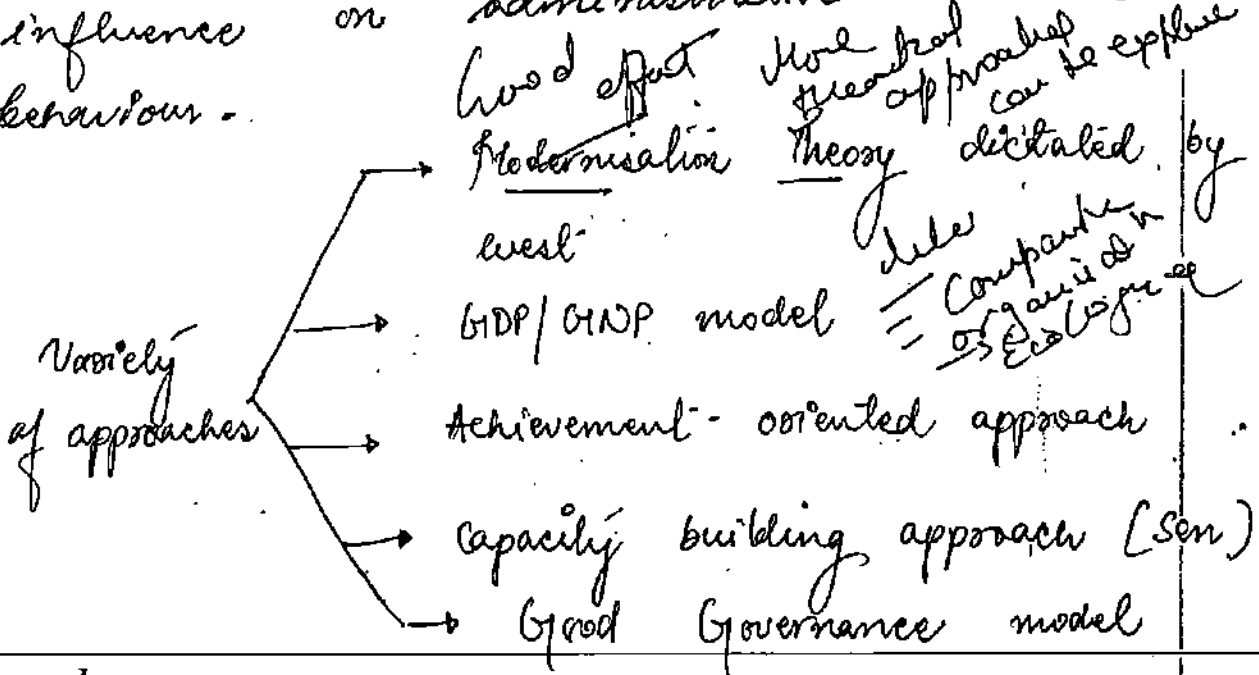 influence on
behaviour.
Good effort More theoretical approaches can be explored
Modernisation Theory dictated by
west
like
= Comparative
= Organisation
GDP/GNP model
Variety
of approaches
Achievement - oriented approach
Capacity building approach (Sen)
Good Governance model